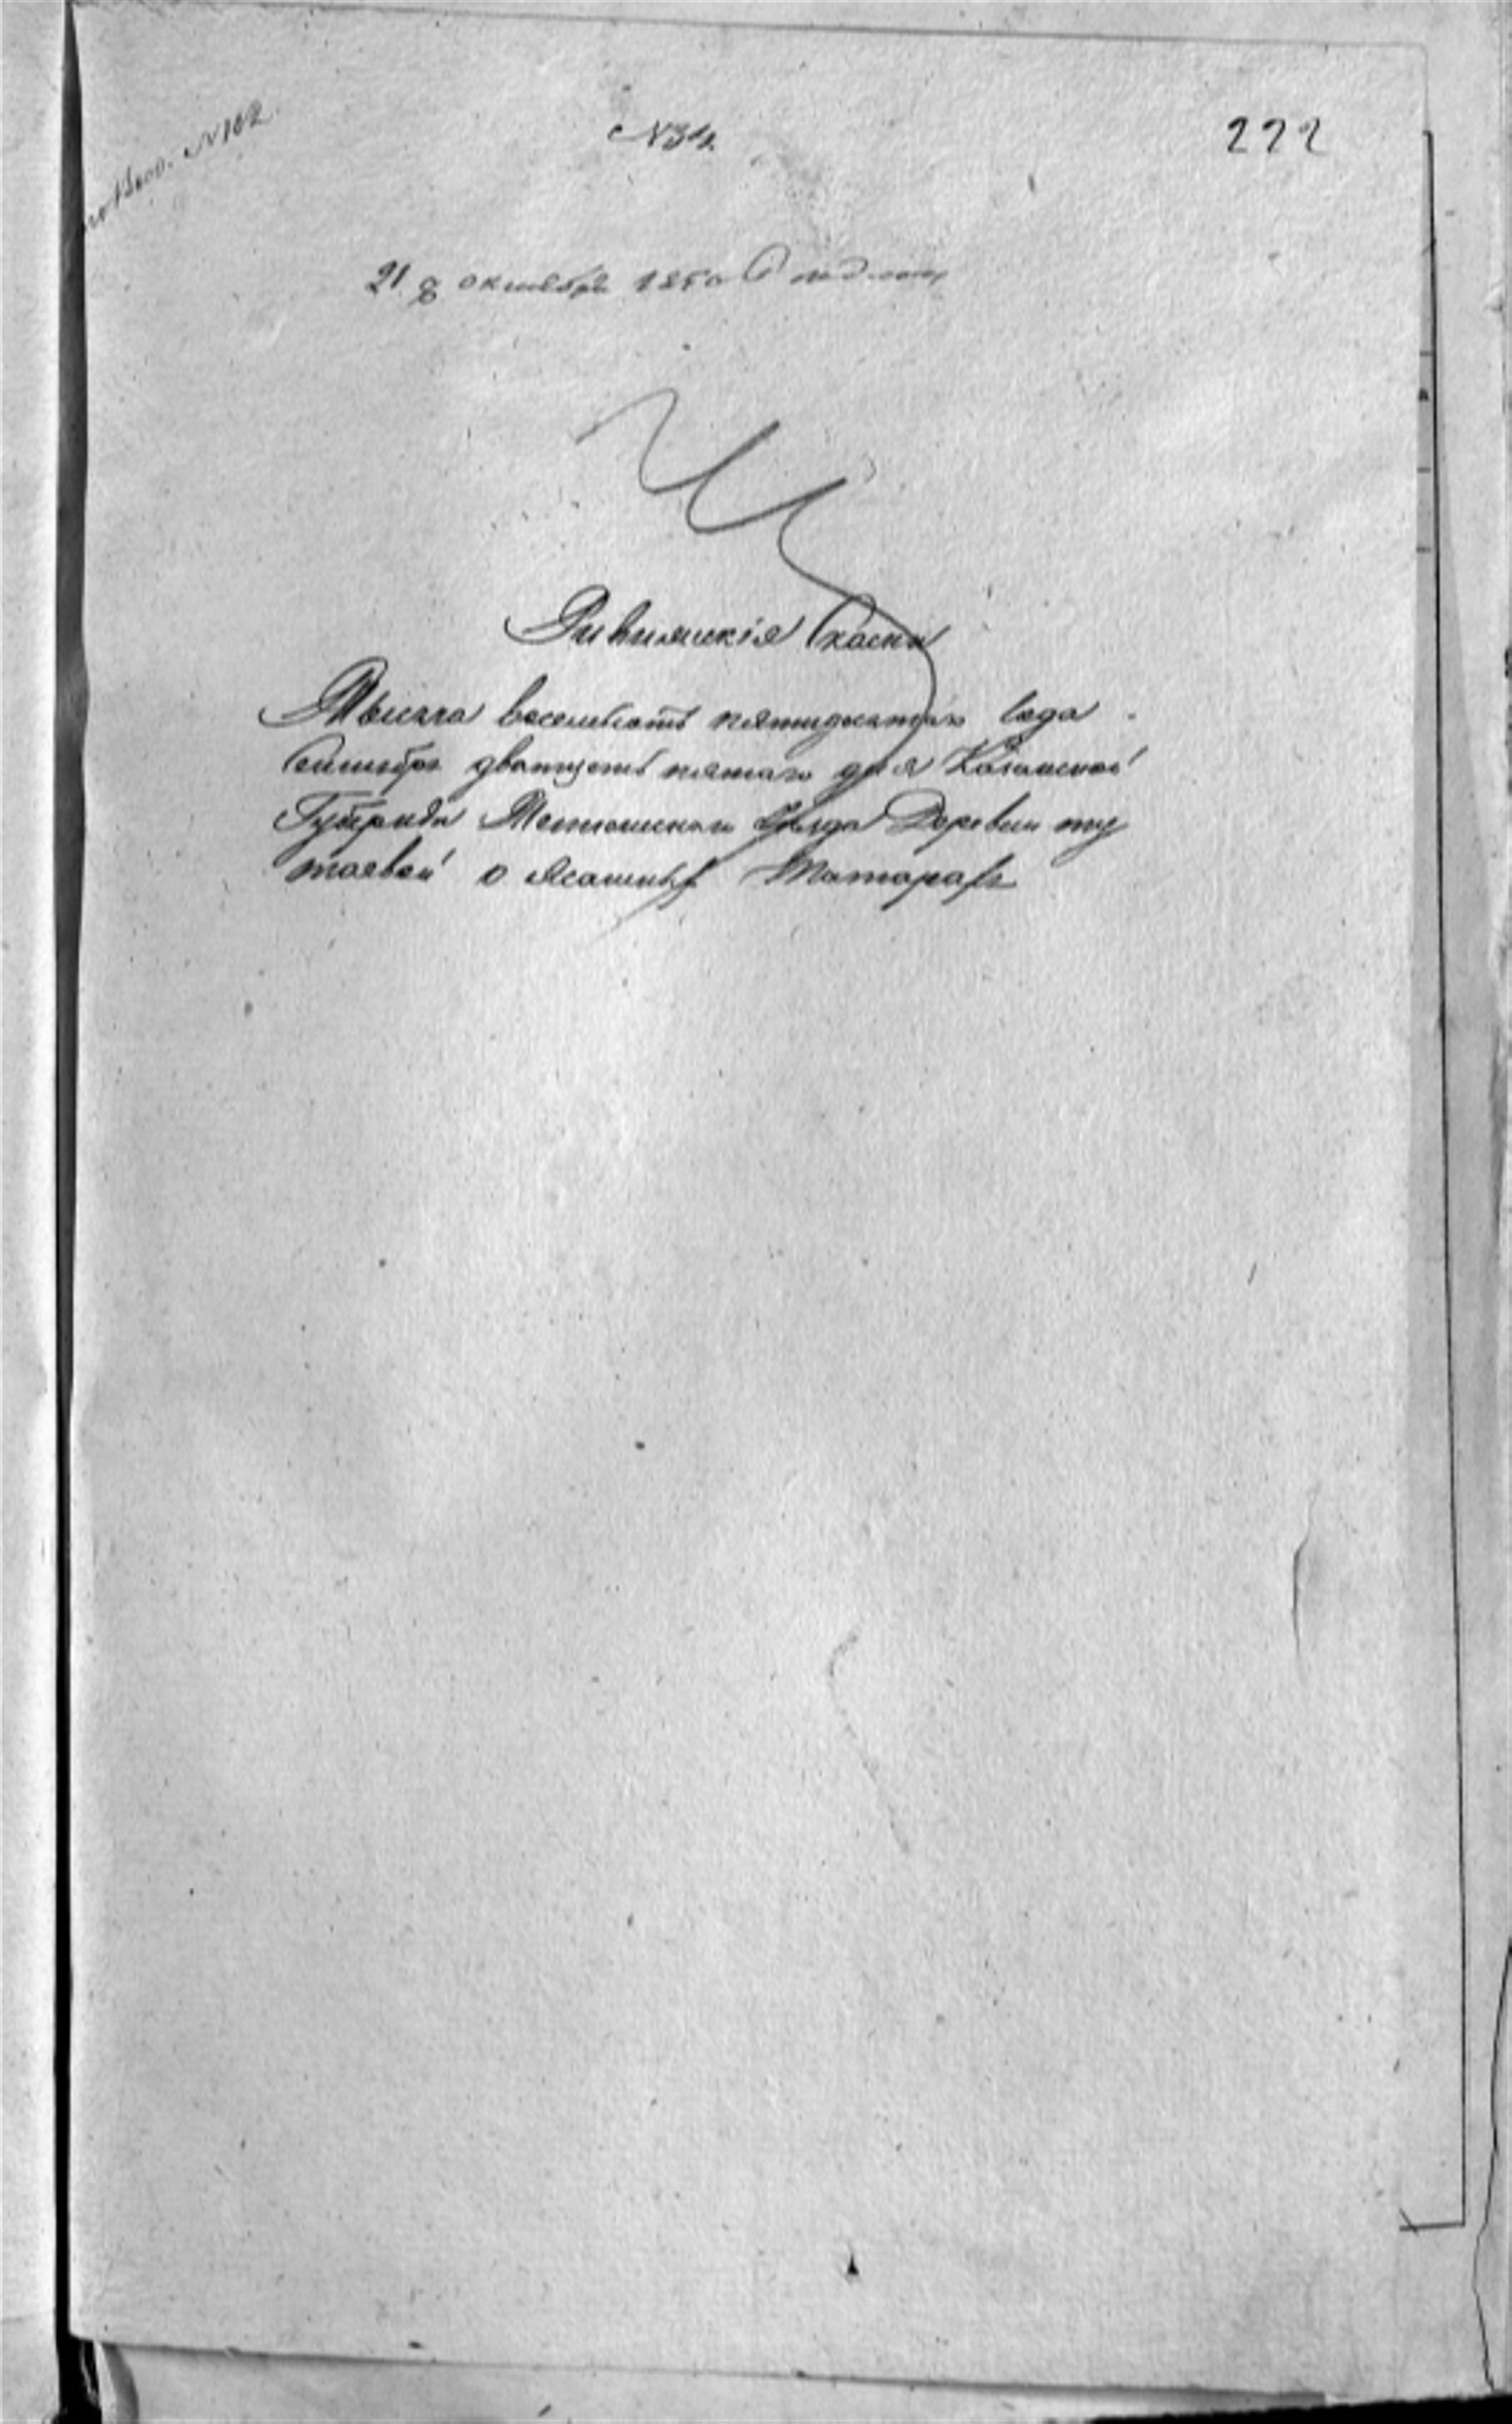 № 102
№ 34.
222
21 октября 1850
Ревижския Скаски
Тысяча восемьсотъ пятидесятаго Года
Сентября дватцеть пятаго дня Казанской
Губернiи Тетюшскаго Уезда Деревни ту
таевой о Ясашныхъ Татарахъ